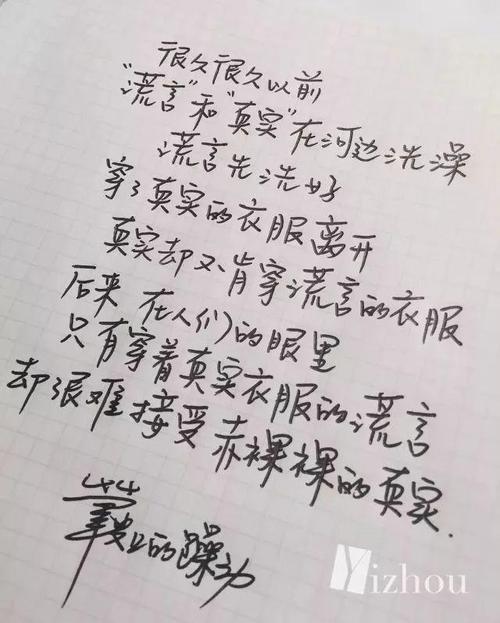 很久很久以前
“谎言”和“真实”在河边洗澡
谎言先洗好
穿了真实的衣服离开
真实却不肯穿谎言的衣服
后来 在人们的眼里
只有穿着真实衣服的谎言
却很难接受赤裸裸的真实.
的躁动
Yizhou